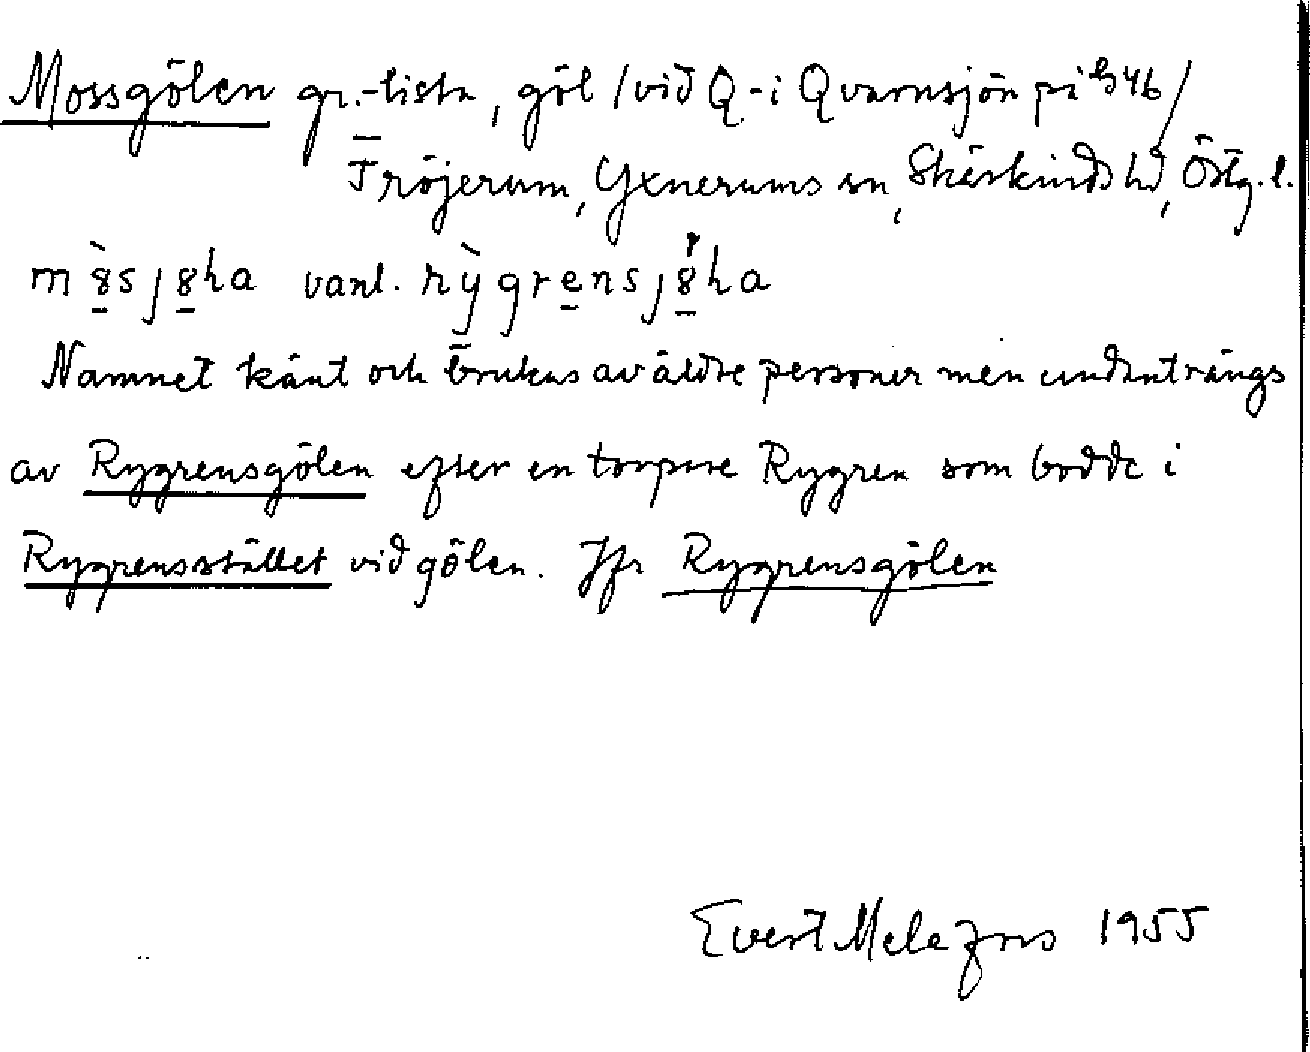 Mossgölen gr.-lista, göl /vid Q-i Qvarnsjön på bl 46/
Fröjerum, Yxnerums sn, Skärkinds hd, Östg.l.
vanl.
Namnet känt och brukas av äldre personer men undanträngs
av Rygrensgölen efter en torpare Rygren som bodde i
Rygrensstället vid gölen. Jfr Rygrensgölen
Evert Melefors 1955